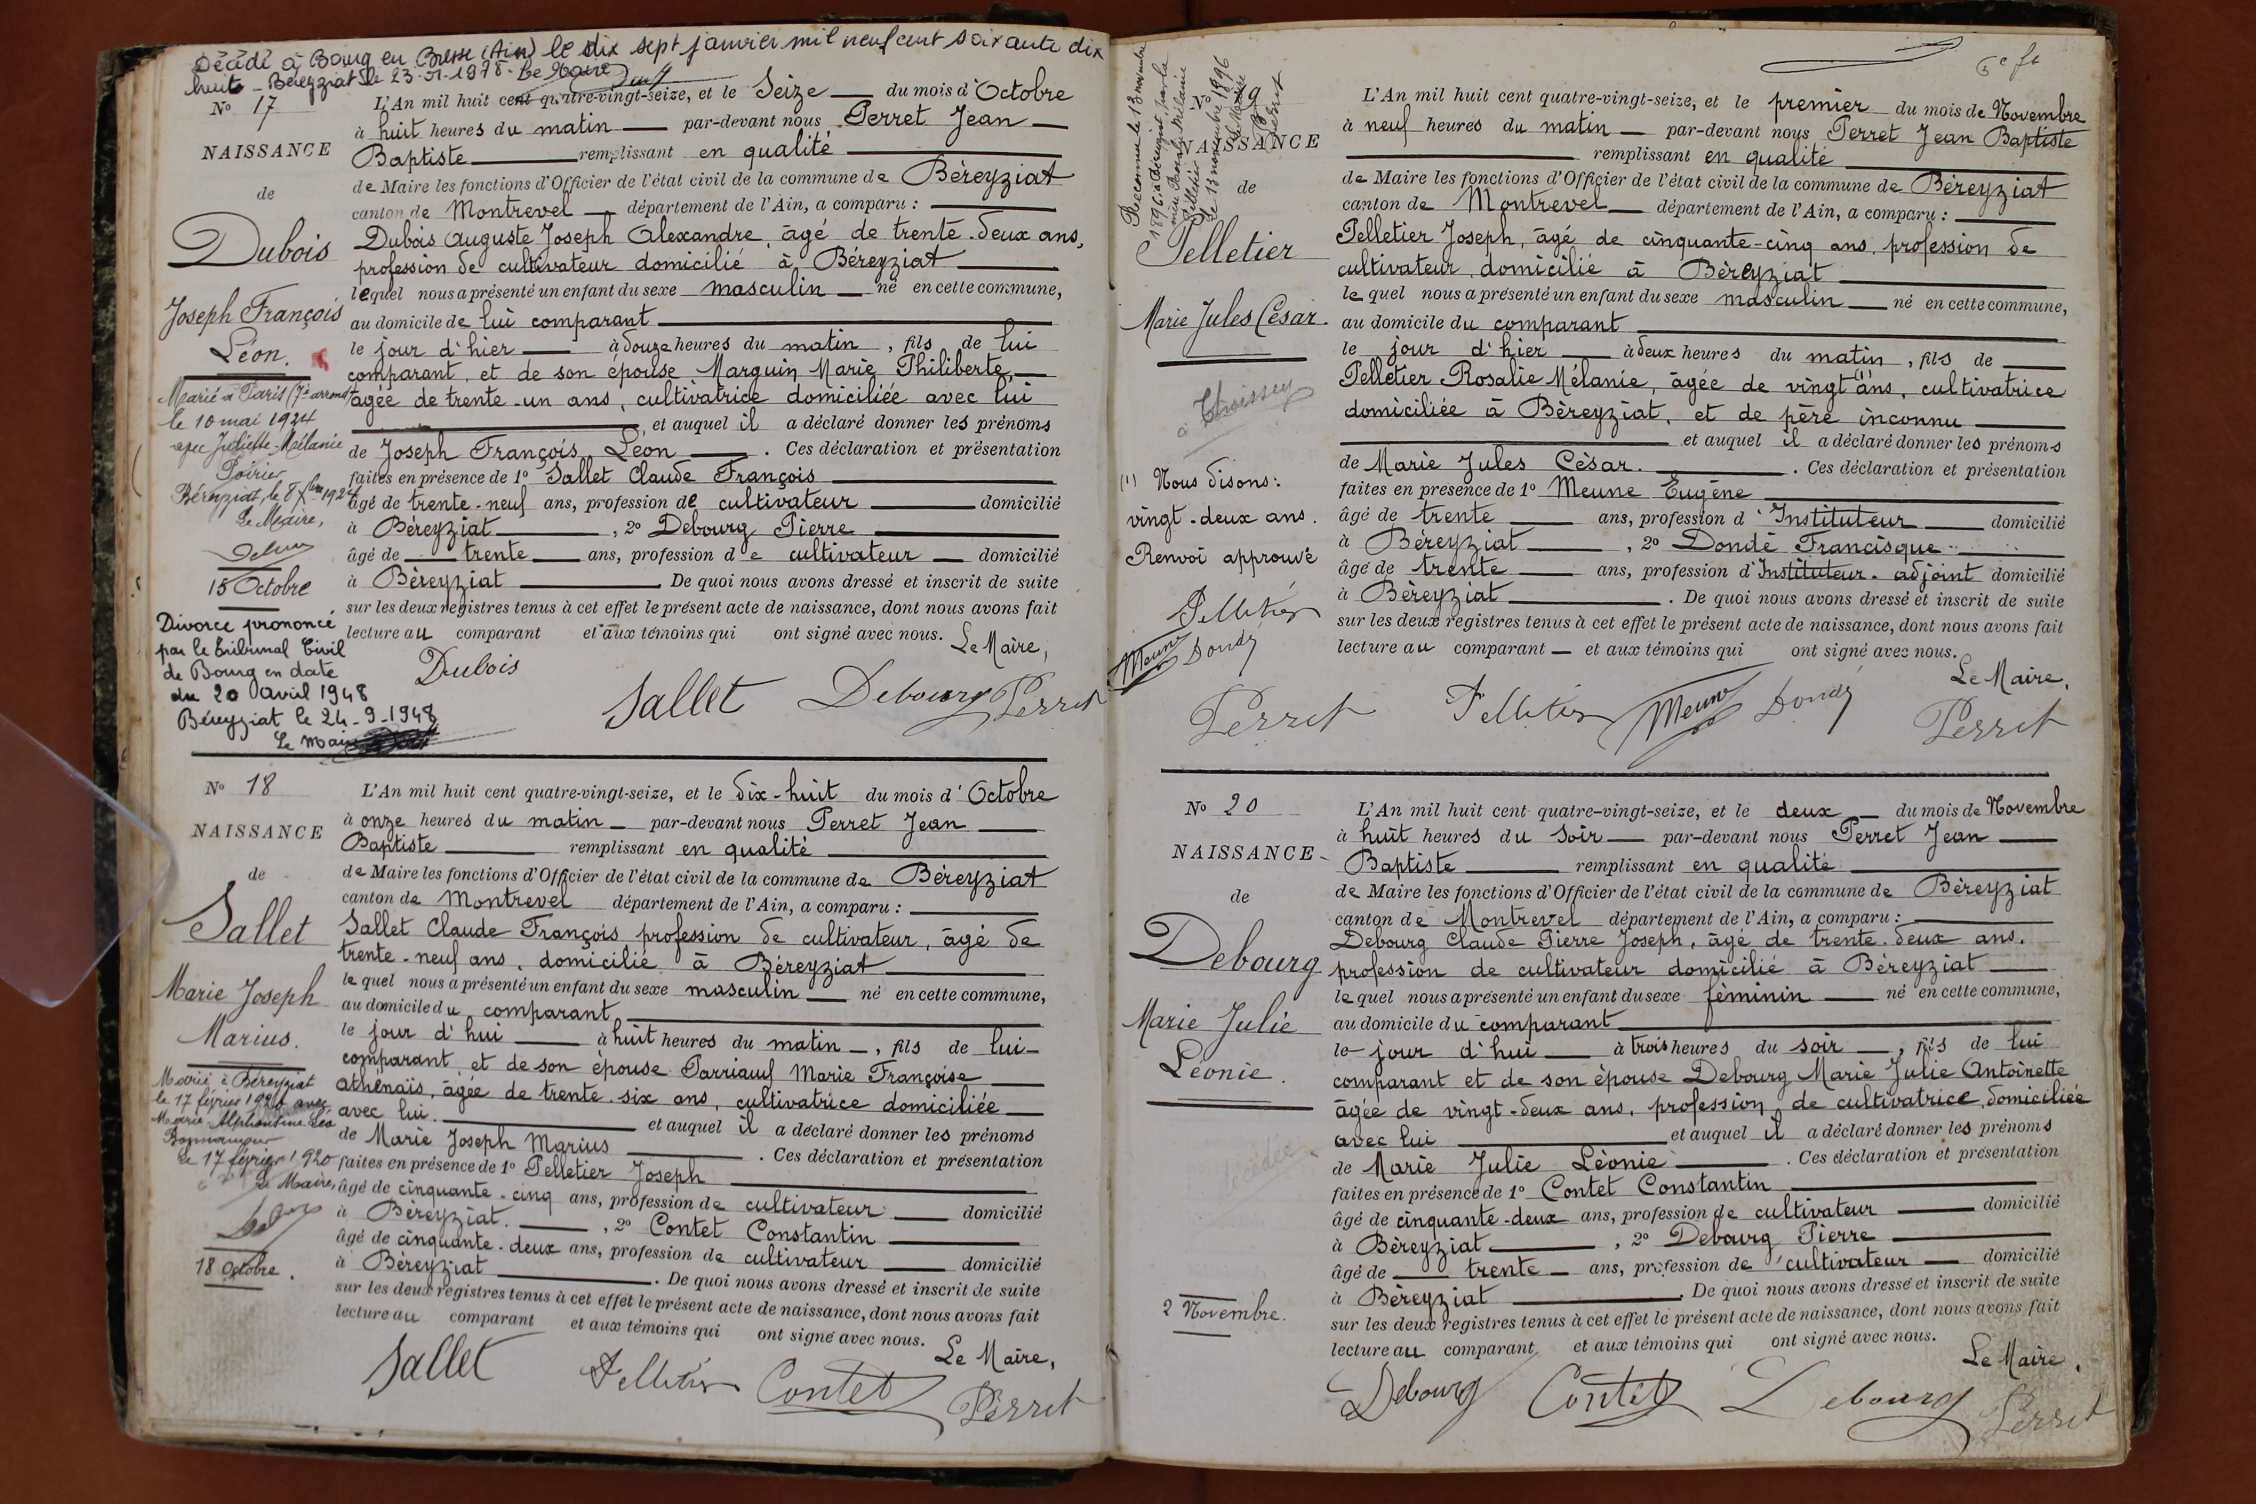 Décédé à Bourg en Bresse (Ain) le dix sept janvier mil neuf cent soixante dix
huit - Béreyziat le 23-01-1978 - Le Maire
N° 17
NAISSANCE
de
Dubois
Joseph François
Léon.
Marié à Paris (7e arrond)
le 10 mai 1924
avec Juliette-Mélanie
Poirier
Béreyziat, le 8 Xbre 1924
Le Maire,
15 Octobre
Divorce prononcé
par le Tribunal Civil
de Bourg en date
du 20 Avril 1948
Béreyziat le 24-9-1948
Le Maire
L'An mil huit cent quatre-vingt-seize, et le Seize du mois d'Octobre
à huit heures du matin par-devant nous Perret Jean
Baptiste remplissant en qualité
de Maire les fonctions d'Officier de l'état civil de la commune de Béreyziat
canton de Montrevel département de l'Ain, a comparu :
Dubois Auguste Joseph Alexandre, âgé de trente-deux ans,
profession de cultivateur domicilié à Béreyziat
lequel nous a présenté un enfant du sexe masculin né en cette commune,
au domicile de lui comparant
le jour d'hier à douze heures du matin, fils de lui
comparant, et de son épouse Marguin Marie Philiberte,
âgée de trente-un ans, cultivatrice domiciliée avec lui
et auquel il a déclaré donner les prénoms
de Joseph François Léon . Ces déclaration et présentation
faites en présence de 1° Sallet Claude François
âgé de trente-neuf ans, profession de cultivateur domicilié
à Béreyziat , 2° Debourg Pierre
âgé de trente ans, profession de cultivateur domicilié
à Béreyziat . De quoi nous avons dressé et inscrit de suite
sur les deux registres tenus à cet effet le présent acte de naissance, dont nous avons fait
lecture au comparant et aux témoins qui ont signé avec nous. Le Maire,
Dubois Sallet Debourg Perret
N° 18
NAISSANCE
de
Sallet
Marie Joseph
Marius.
Marié à Béreyziat
le 17 février 1920 avec
Marie Alphonsine Léa
le 17 février 1920
Le Maire,
18 Octobre.
L'An mil huit cent quatre-vingt-seize, et le dix-huit du mois d'Octobre
à onze heures du matin par-devant nous Perret Jean
Baptiste remplissant en qualité
de Maire les fonctions d'Officier de l'état civil de la commune de Béreyziat
canton de Montrevel département de l'Ain, a comparu :
Sallet Claude François profession de cultivateur, âgé de
trente-neuf ans, domicilié à Béreyziat
lequel nous a présenté un enfant du sexe masculin né en cette commune,
au domicile du comparant
le jour d'hui à huit heures du matin, fils de lui
comparant et de son épouse Parriaud Marie Françoise
Athénaïs, âgée de trente-six ans, cultivatrice domiciliée
avec lui. et auquel il a déclaré donner les prénoms
de Marie Joseph Marius . Ces déclaration et présentation
faites en présence de 1° Pelletier Joseph
âgé de cinquante-cinq ans, profession de cultivateur domicilié
à Béreyziat. , 2° Contet Constantin
âgé de cinquante-deux ans, profession de cultivateur domicilié
à Béreyziat . De quoi nous avons dressé et inscrit de suite
sur les deux registres tenus à cet effet le présent acte de naissance, dont nous avons fait
lecture au comparant et aux témoins qui ont signé avec nous. Le Maire,
Sallet Pelletier Contet Perret
6e ft
Reconnu le 13 novembre
1896 à Béreyziat par la
mère Rosalie Mélanie
Pelletier
Le 13 novembre 1896
Le Maire
Perret
NAISSANCE
de
Pelletier
Marie Jules César.
à Thoissey
(1) Nous disons:
vingt-deux ans.
Renvoi approuvé
Pelletier
Meune Dondé
Perret
L'An mil huit cent quatre-vingt-seize, et le premier du mois de Novembre
à neuf heures du matin par-devant nous Perret Jean Baptiste
remplissant en qualité
de Maire les fonctions d'Officier de l'état civil de la commune de Béreyziat
canton de Montrevel département de l'Ain, a comparu :
Pelletier Joseph, âgé de cinquante-cinq ans, profession de
cultivateur, domicilié à Béreyziat
lequel nous a présenté un enfant du sexe masculin né en cette commune,
au domicile du comparant
le jour d'hier à deux heures du matin, fils de
Pelletier Rosalie Mélanie, âgée de vingt (1) ans, cultivatrice
domiciliée à Béreyziat, et de père inconnu
et auquel il a déclaré donner les prénoms
de Marie Jules César. . Ces déclaration et présentation
faites en présence de 1° Meune Eugène
âgé de trente ans, profession d'Instituteur domicilié
à Béreyziat , 2° Dondé Francisque
âgé de trente ans, profession d'Instituteur-adjoint domicilié
à Béreyziat . De quoi nous avons dressé et inscrit de suite
sur les deux registres tenus à cet effet le présent acte de naissance, dont nous avons fait
lecture au comparant et aux témoins qui ont signé avec nous.
Le Maire,
Pelletier Meune Dondé Perret
N° 20
NAISSANCE
de
Debourg
Marie Julie
Léonie.
décédée
2 Novembre.
L'An mil huit cent quatre-vingt-seize, et le deux du mois de Novembre
à huit heures du soir par-devant nous Perret Jean
Baptiste remplissant en qualité
de Maire les fonctions d'Officier de l'état civil de la commune de Béreyziat
canton de Montrevel département de l'Ain, a comparu :
Debourg Claude Pierre Joseph, âgé de trente-deux ans.
profession de cultivateur domicilié à Béreyziat
lequel nous a présenté un enfant du sexe féminin né en cette commune,
au domicile du comparant
le jour d'hui à trois heures du soir, fils de lui
comparant et de son épouse Debourg Marie Julie Antoinette
âgée de vingt-deux ans, profession de cultivatrice, domiciliée
avec lui et auquel il a déclaré donner les prénoms
de Marie Julie Léonie . Ces déclaration et présentation
faites en présence de 1° Contet Constantin
âgé de cinquante-deux ans, profession de cultivateur domicilié
à Béreyziat , 2° Debourg Pierre
âgé de trente ans, profession de cultivateur domicilié
à Béreyziat . De quoi nous avons dressé et inscrit de suite
sur les deux registres tenus à cet effet le présent acte de naissance, dont nous avons fait
lecture au comparant et aux témoins qui ont signé avec nous.
Le Maire,
Debourg Contet Debourg Perret